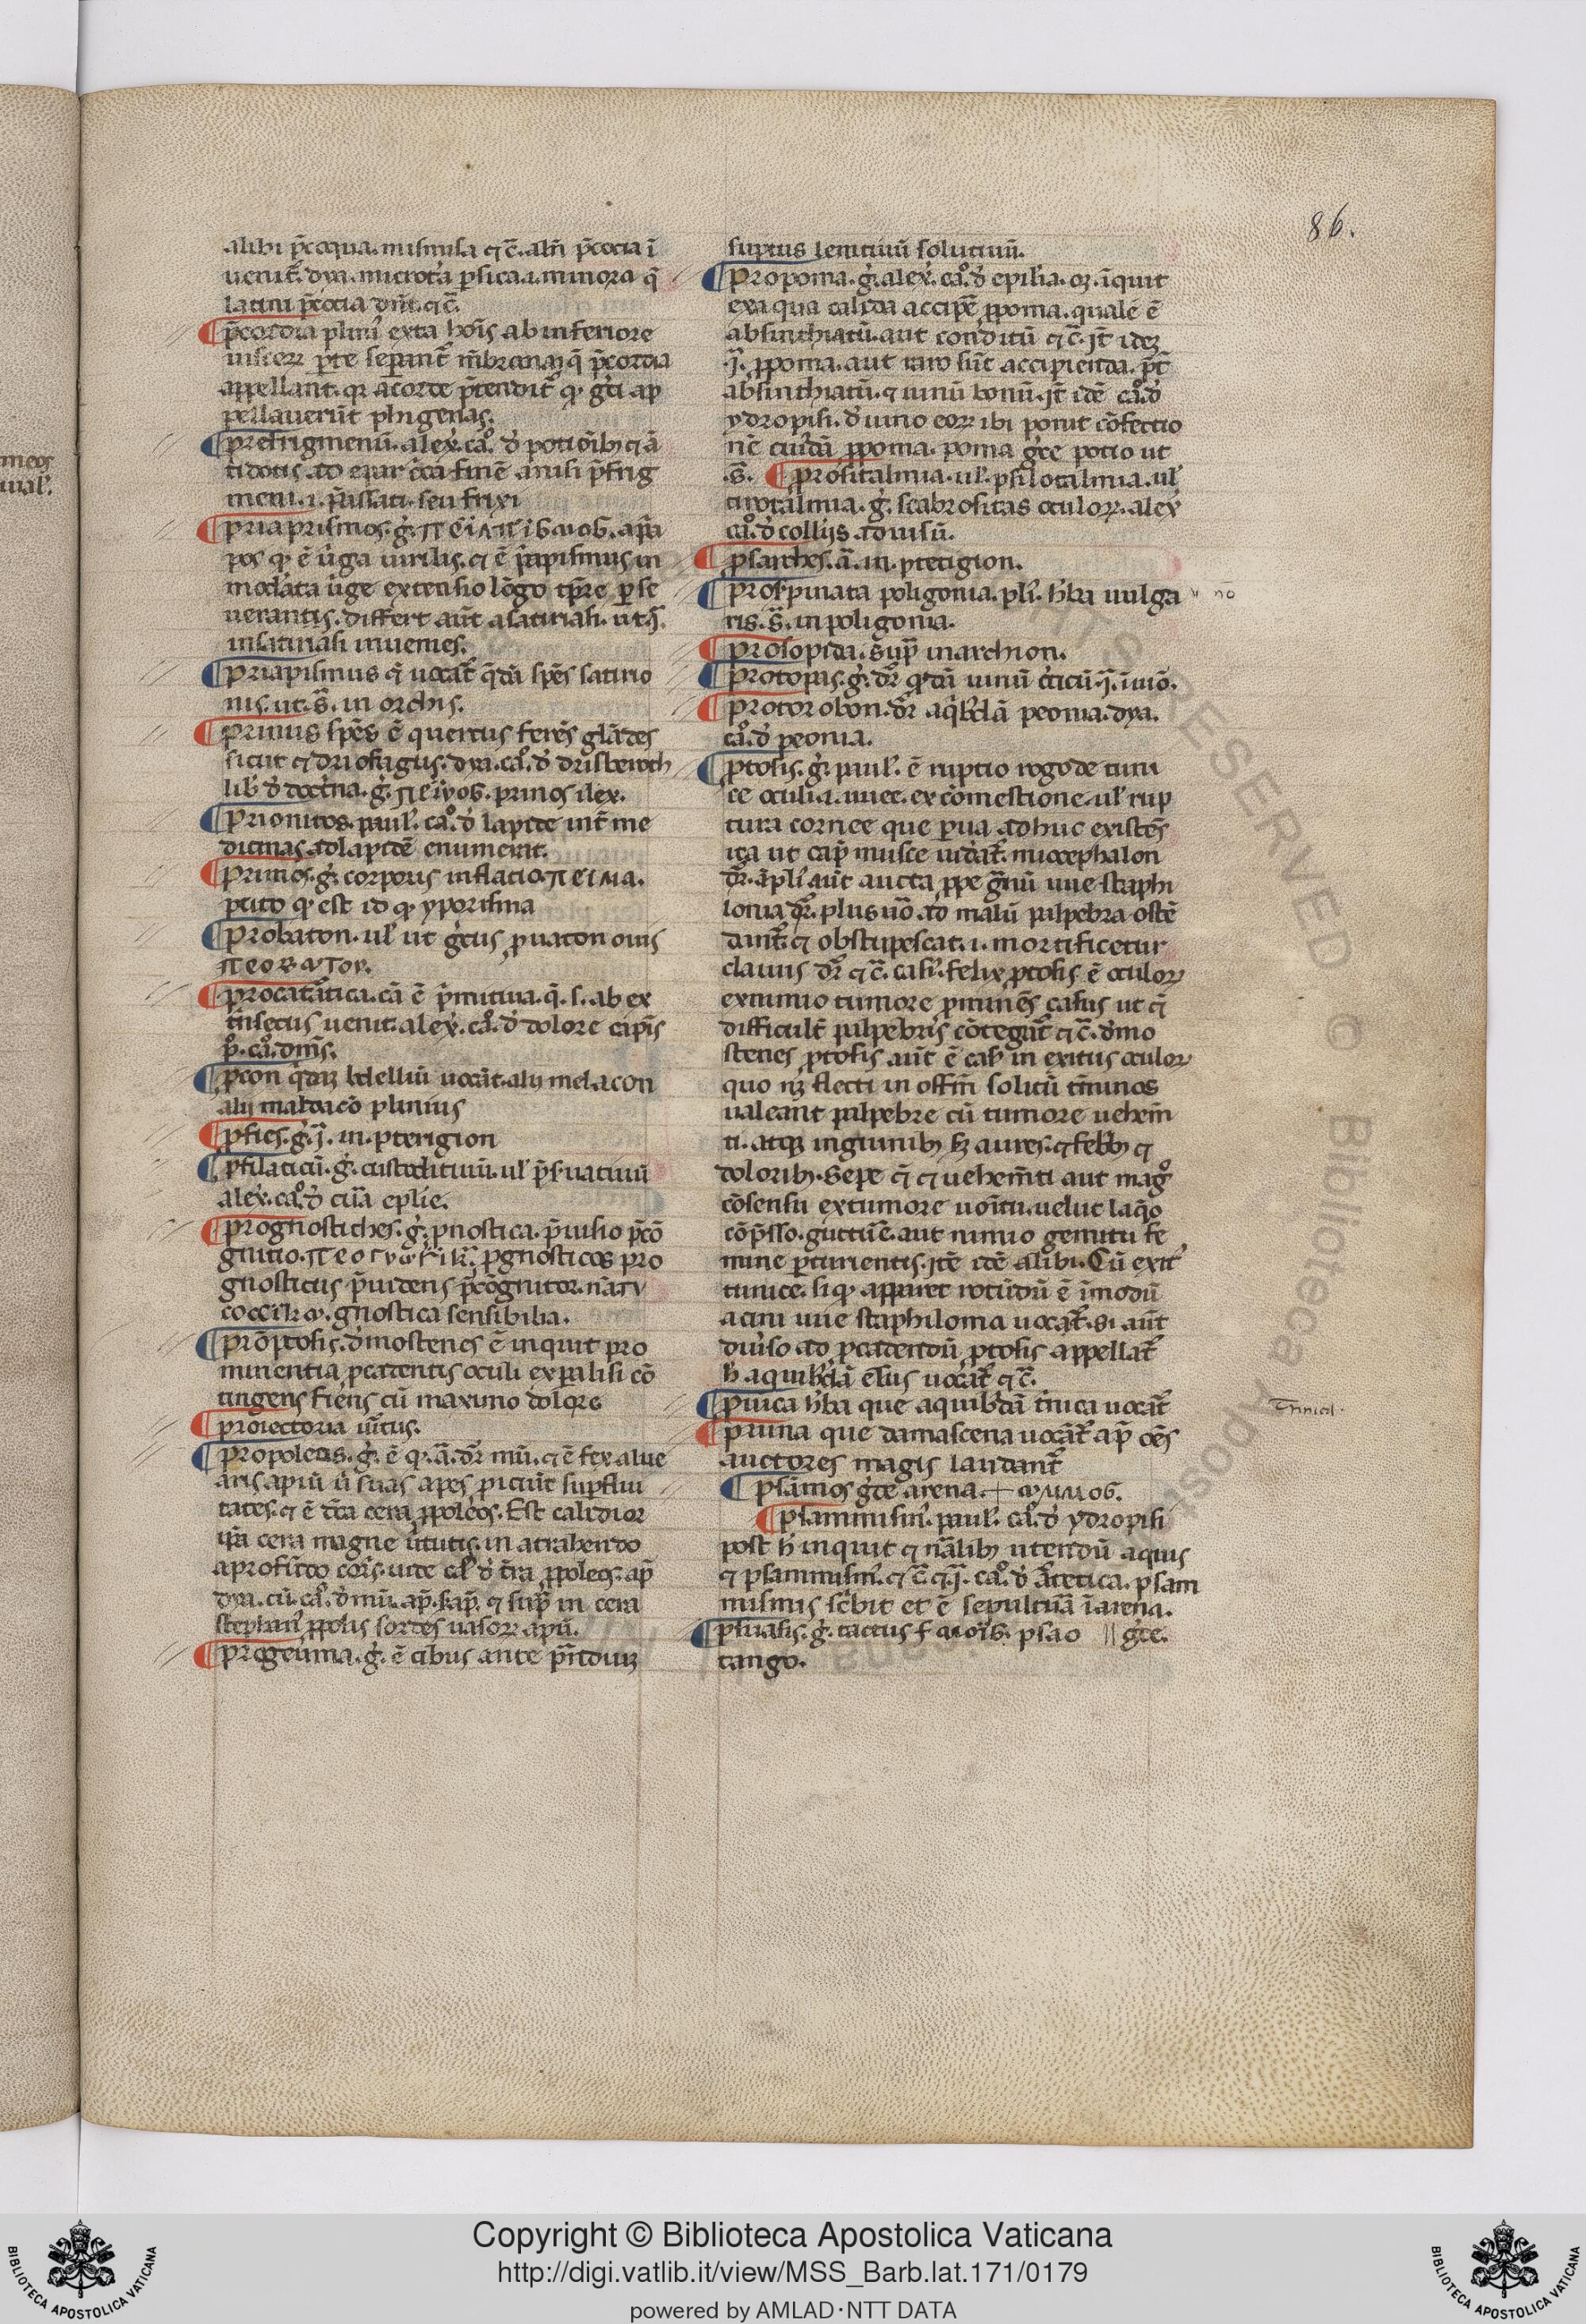 86.
alibi p̄coqua. misinusa ⁊c̄. alm̄ p̄cocia ī
uenit᷑. dya. microta persica .i. minora q̄
latini p̄cocia dn̄t. ⁊c̄.
p̄cordia plini᷑ exta hoīs ab inferiore
uiscerꝝ ꝑte seꝑant᷑ mēbranaꝫ q̄ p̄cordia
appellant. qꝛ acorde p̄tendit᷑ qͦ gͥci ap
pellauerūt phigenas.
prefrigmenū. alex᷑. caͦ. d᷑ potiōibꝫ ⁊ ā
tidotis ad
meni .i. p̄assati seu frixi
priaprismos. g᷑. πεἰλπἰϭμοϭ. apͥa
pos qͦ ē uͥga uirilis. ⁊ ē pͥapismus in
moderata uͥge extensio lōgo tp̄re ꝑse
uerantis. differt aūt a satiriasi. ut .j᷑.
in satiriasi inuenies.
priapismus q̄ uocat᷑ q̄dā spēs satirio
nis. ut .s᷑. in orchis.
prinus spēs ē quercus ferēs glādes
sicut ⁊ driofagus. dya. caͦ. d᷑
lib᷑ d᷑ doctͥna. g᷑. πεἰνοϭ. prinos ilex.
prionitos. paul᷑. caͦ. d᷑ lapide int᷑ me
dicinas ad lapidē enumerat.
primos. g᷑. corporis inflatio. πεἰμα.
ptito qͦ est id qͦ yporisma
probaton. ul᷑ ut gͥcus ꝓuaton ouis
πεοβατον.
procatātica. cā ē pͥmitiua. q̄. s. ab ex
tͥnsecus uenit. alex᷑. caͦ. d᷑ dolore capi᷑s
pͦ. caͦ. dni᷑s.
ꝓcon qͥdaꝫ bdelliū uocāt. alij melacon
alij maldacō plinius
ꝓfies. g᷑. j᷑. in. pterigion
ꝓfilaticū. g᷑. custoditiuū. ul᷑ p̄seruatiuū
alex᷑. caͦ. d᷑ cura eplie.
prognostiches. g᷑. pnostica. p̄uisio p̄cō
gnitio. ꝓgnosticos pro
gnosticus p̄uidens p̄cōgnitor.
gnostica sensibilia.
prōptosis. d᷑mostenes ē inquit pro
minentia ꝓcadentis oculi ex paralisi cō
tingens fiens cū maximo dolore
proiectoria uͥtus.
propoleos. g᷑. ē qͦ. ā. dr̄ mū. ⁊ ē fex alue
aris apiū ī suas apes ꝓiciūt supflui
tates. ⁊ ē tͥta cera ꝓpoleos. Est calidior
qͣm cera magne uͥtutis. in atrahendo
a profūdo corꝑis. unde caͦ d᷑ cera ꝓpoleos. ap᷑
dya. cū. caͦ. d᷑ mū. ap᷑. ser̄ap᷑. ⁊ supͣ in cera
stephan᷑ ꝓpolis sordes uasorꝝ apū.
progeuma. g᷑. ē cibus ante pͣnduiꝫ
suptus lenitiuū solutiuū.
Propoma. g᷑. alex᷑. caͦ. d᷑ epil᷑ia. oꝫ. īquit
ex aqua calida accipe᷑ ꝓpoma. quale ē
absinthiatū. aut conditū ⁊c̄. jt᷑ ideꝫ
.j᷑. ꝓpoma. aut raro sūt accipienda. p̄t᷑
absinthiatū. ⁊ uinū bonū. jt᷑ idē caͦ. d᷑
ydropisi. d᷑ uino eorꝝ ibi ponit cōfectio
nē cuiꝰdā ꝓpoma. poma gͥce potio ut
.s᷑. prositalmia. ul᷑. psilotalmia. ul᷑
tirotalmia. g᷑. scabrositas oculoꝝ. alex᷑
caͦ. d᷑ collijs ad uisū.
ꝓsarches. ā. in. pterigion.
prospinata poligonia. pli᷑. hͥba uulga
ris. s᷑. in poligonia.
prosopida. sup͂ in archion.
protopas. g᷑. dr̄ qͦdā uinū
protorobon. dr̄ aqͥbͥdā peonia. dya.
caͦ. d᷑ peonia.
ptosis. g᷑. paul᷑. ē ruptio rogode tuni
ce oculi .i. uuee. ex cōmestione. ul᷑ rup
tura cornee que ꝑua adhuc existēs
ita ut cap᷑ musce uideat᷑. miocephalon
dr̄. ampli᷑ aūt aucta ꝓpe gͣnū uue staphi
loma dr̄. plus uͦ ad malū palpebra ostē
dant᷑. ⁊ obstupescat .i. mortificetur
clauis dr̄ ⁊c̄. casi᷑. felix ptosis ē oculoꝝ
ex nimio tumore ꝓminēs casus ut q̄
difficult᷑ palpebris cōtegūt᷑ ⁊c̄. d᷑mo
stenes ptosis aūt ē casꝰ in exitus oculoꝝ
quo nꝫ flecti in offm̄ solitū tͥminos
ualeant palpebre cū tumore uehem̄
ti. atqꝫ inguinibꝫ sꝫ aures. ⁊ febbꝫ ⁊
doloribꝫ. Sepe q̄ ⁊ uehem̄ti aut magͦ
cōsensu ex tumore uomitu. uelut laqͦo
cōp̄sso. gutture. aut nimio gemitu fe
mine ꝑturientis. jtē idē alibi. Cū exit᷑
tunice. siqͦ apparet rotūdū ē ī modū
acini uue staphiloma uocat᷑. si aūt
diuiso ad ꝓcadendū ptosis appellat᷑
h̄ aquibͥdā elus uocat᷑ ⁊c̄.
ꝓuica hͥba que aquibͥdā tͥnica uocat᷑
pruna que damascena uocāt᷑ ap᷑ oēs
auctores magis laudant᷑
psāmos gͥce arena.
psammismi᷑. paul᷑. caͦ. d᷑ ydropisi
post h̄ inquit ⁊ nāliꝫ utendū aquis
⁊ psammismi᷑. ⁊c̄ ⁊ .j᷑. caͦ. d᷑ artetica. psam
mismis scͥbit et ē sepultura ī arena.
psiualis. g᷑. tactus psao || gͥce.
tango.
Copyright © Biblioteca Apostolica Vaticana
http://digi.vatlib.it/view/MSS_Barb.lat.171/0179
powered by AMLAD·NTT DATA
BIBLIOTECA APOSTOLICA VATICANA
BIBLIOTECA APOSTOLICA VATICANA